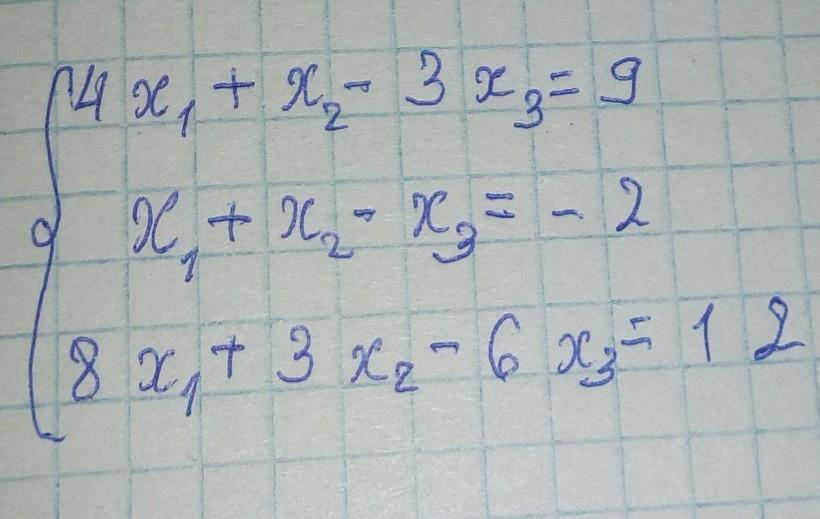 4x₁ + x₂ - 3x₃ = 9
x₁ + x₂ - x₃ = - 2
8x₁ + 3x₂ - 6x₃ = 12